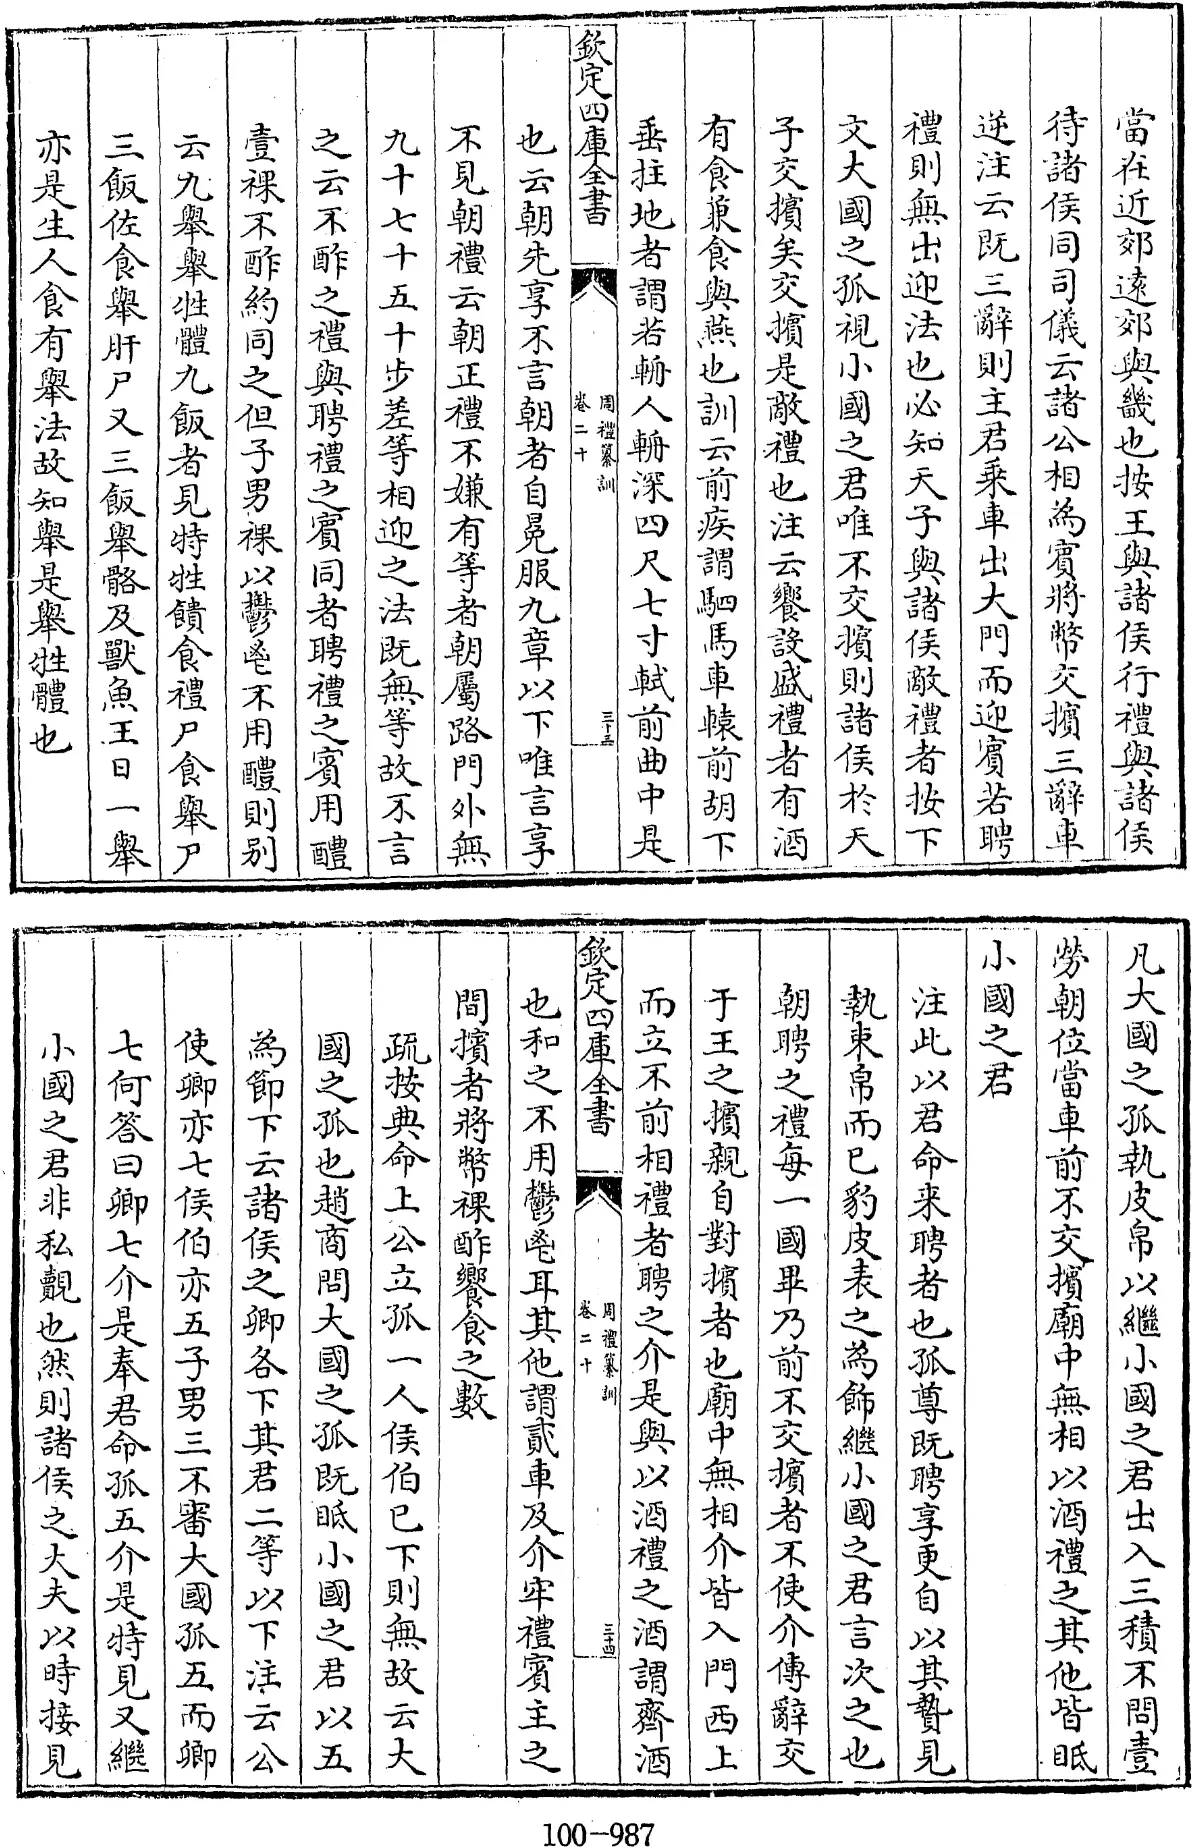 當在近郊遠郊與畿也按王與諸侯行禮與諸侯
待諸侯同司儀云諸公相為賓將幣交擯三辭車
逆注云既三辭則主君乘車出大門而迎賓若聘
禮則無出迎法也必知天子與諸侯敵禮者按下
文大國之孤視小國之君唯不交擯則諸侯於天
子交擯矣交擯是敵禮也注云饗設盛禮者有酒
有食兼食與燕也訓云前疾謂駟馬車轅前胡下
垂拄地者謂若輈人輈深四尺七寸軾前曲中是
欽定四庫全書
周禮纂訓
卷二十
三十三
也云朝先享不言朝者自冕服九章以下唯言享
不見朝禮云朝正禮不嫌有等者朝屬路門外無
九十七十五十步差等相迎之法既無等故不言
之云不酢之禮與聘禮之賓同者聘禮之賓用醴
壹祼不酢約同之但子男祼以鬱鬯不用醴則別
云九舉舉牲體九飯者見特牲饋食禮尸食舉尸
三飯佐食舉肝尸又三飯舉骼及獸魚王日一舉
亦是生人食有舉法故知舉是舉牲體也
凡大國之孤執皮帛以繼小國之君出入三積不問壹
勞朝位當車前不交擯廟中無相以酒禮之其他皆眂
小國之君
注此以君命来聘者也孤尊既聘享更自以其贄見
執束帛而已豹皮表之為飾繼小國之君言次之也
朝聘之禮每一國畢乃前不交擯者不使介傳辭交
于王之擯親自對擯者也廟中無相介皆入門西上
而立不前相禮者聘之介是與以酒禮之酒謂齊酒
欽定四庫全書
周禮纂訓
卷二十
三十四
也和之不用鬱鬯耳其他謂貳車及介牢禮賓主之
間擯者將幣祼酢饗食之數
疏按典命上公立孤一人侯伯已下則無故云大
國之孤也趙商問大國之孤既眂小國之君以五
為節下云諸侯之卿各下其君二等以下注云公
使卿亦七侯伯亦五子男三不審大國孤五而卿
七何答曰卿七介是奉君命孤五介是特見又繼
小國之君非私覿也然則諸侯之大夫以時接見
100-987